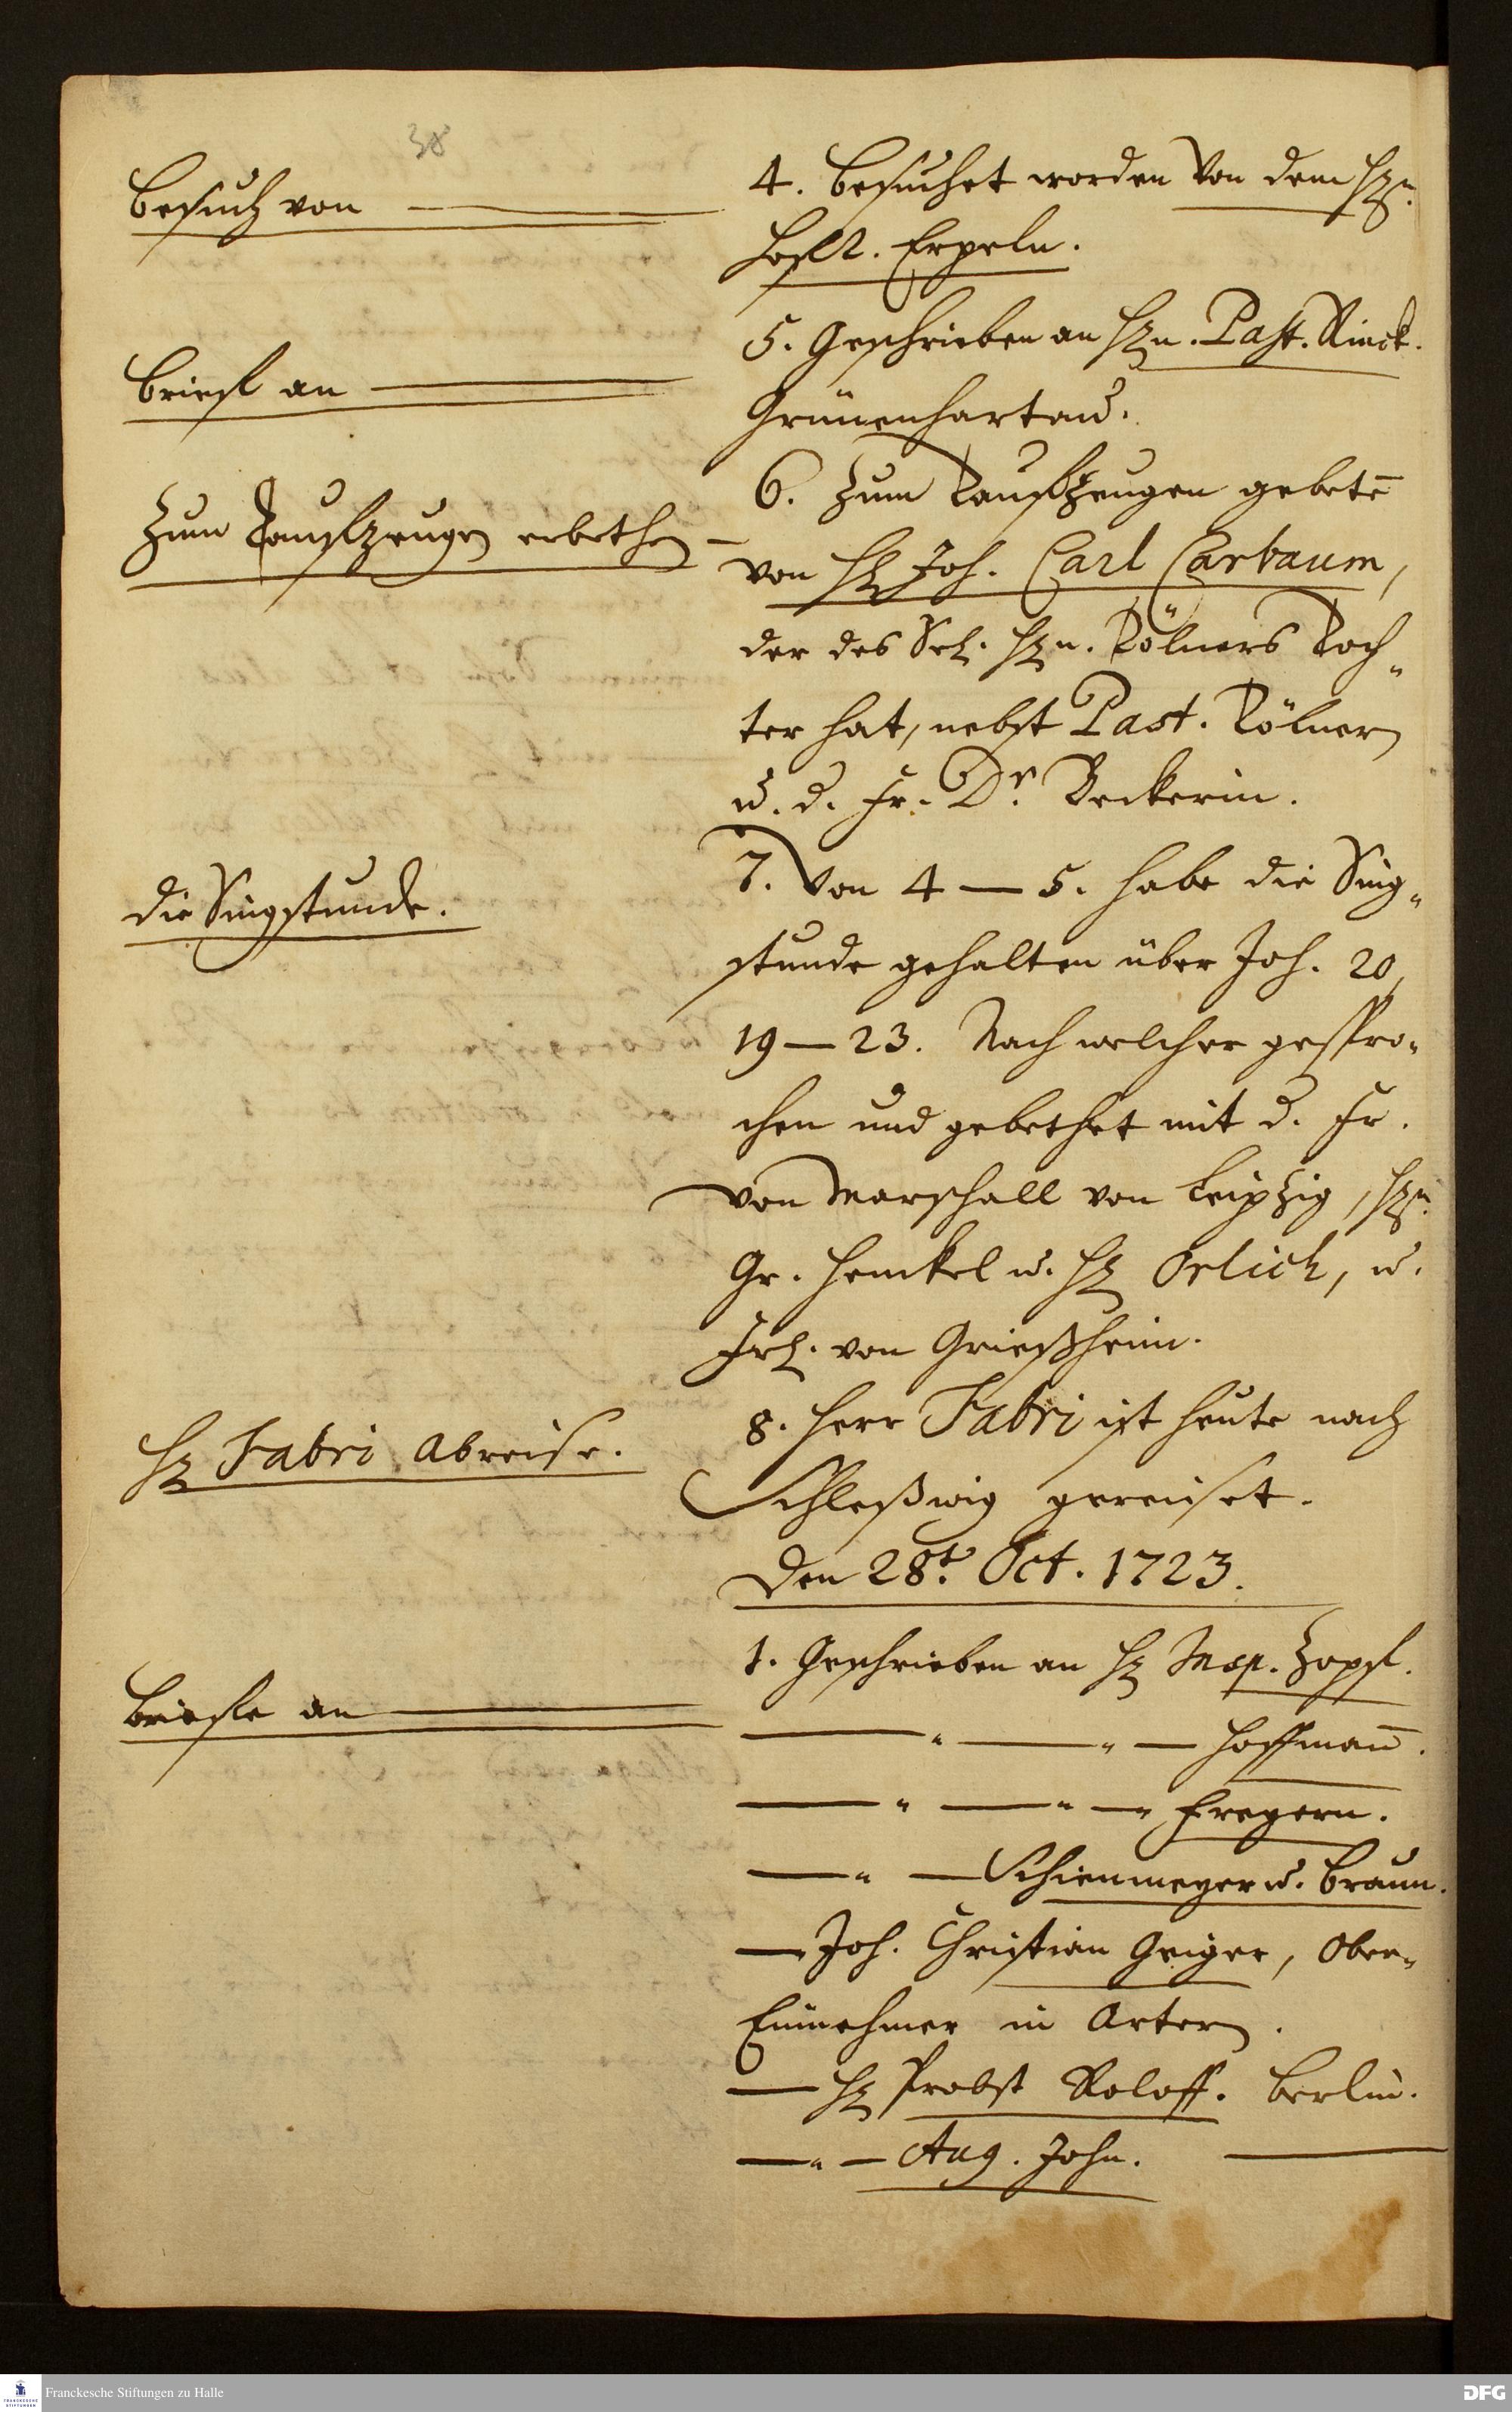 38
Besuch von
4. Besuchet worden von dem Hn.
HoffR. Erpeln.
Brieff an
5. Geschrieben an Hn. Past. Rinck.
Grünenhartau.
Zum Tauffzeugen erbethen
6. Zum Tauffzeugen gebetē
von H Joh. Carl Carbaum,
der des Sel. Hn. Tölners Toch„
ter hat, nebst Past. Tölnern
u. d. Fr. Dr. Beckerin.
die Singstunde.
7. Von 4 — 5. habe die Sing„
stunde gehalten über Joh. 20,
19 — 23. Nach welcher gespro„
chen und gebethet mit d. Fr.
von Marschall von Leipzig, Hn.
Gr. Henckel u. H Orlich, u.
Frl. von Grießheim.
H Fabri Abreise.
8. Herr Fabri ist heute nach
Schleßwig gereiset.
Den 28t. Oct. 1723.
Brieffe an
1. Geschrieben an H Insp. Zopff.
— „ — „ — Hoffmañ.
— „ — „ — „ Fregern.
— „ — Schienmeyer u. Braun.
— Joh. Christian Geiger, Ober„
Einnehmer in Artern.
— H Probst Roloff. Berlin.
— „ — Aug. John. —
Franckesche Stiftungen zu Halle
DFG